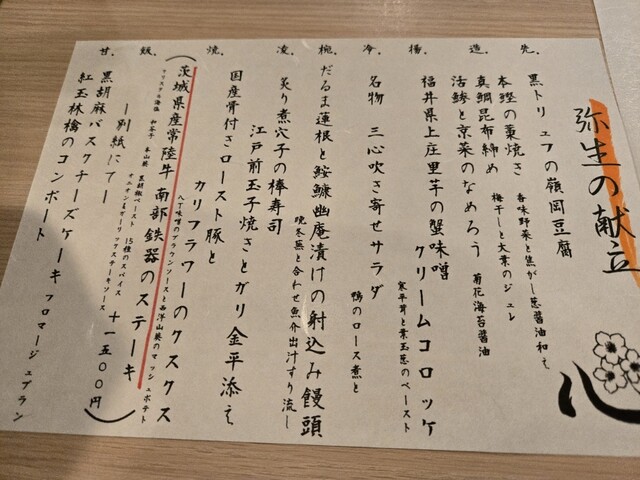 弥生の献立
先、
黒トリュフの嶺岡豆腐
造、
本鰹の藁焼き 香味野菜と焦がし葱醤油和え
真鯛昆布締め 梅干しと大葉のジュレ
活鯵と京菜のなめろう 菊花海苔醤油
揚、
福井県上庄里芋の蟹味噌クリームコロッケ
寒平茸と葉玉葱のペースト
冷、
名物 三心吹き寄せサラダ 鴨のロース煮と
椀、
だるま蓮根と鮟鱇幽庵漬けの射込み饅頭
晩冬蕪と合わせ魚介出汁すり流し
凌、
炙り煮穴子の棒寿司
江戸前玉子焼きとガリ金平添え
焼、
国産骨付きロースト豚と
カリフラワーのクスクス
八丁味噌のブラウンソースと西洋山葵のマッシュポテト
(茨城県産常陸牛 南部鉄器のステーキ
クリスタル海塩 和芥子 本山葵 黒胡椒ペースト 15種のスパイス
オニオン&ガーリックステーキソース
十一五〇〇円)
飯、
ー別紙にてー
甘、
黒胡麻バスクチーズケーキ フロマージュブラン
紅玉林檎のコンポート
心